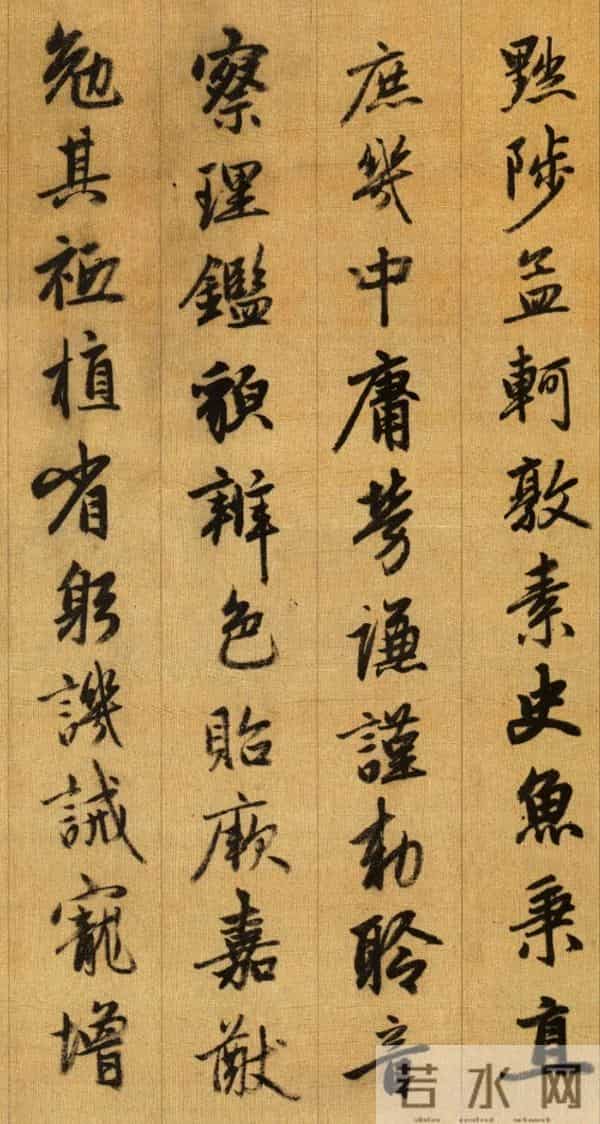 黜陟孟軻敦素史魚秉直
庶幾中庸勞謙謹勅聆音
察理鑑貌辨色貽厥嘉猷
勉其祗植省躬譏誡寵增
若水网